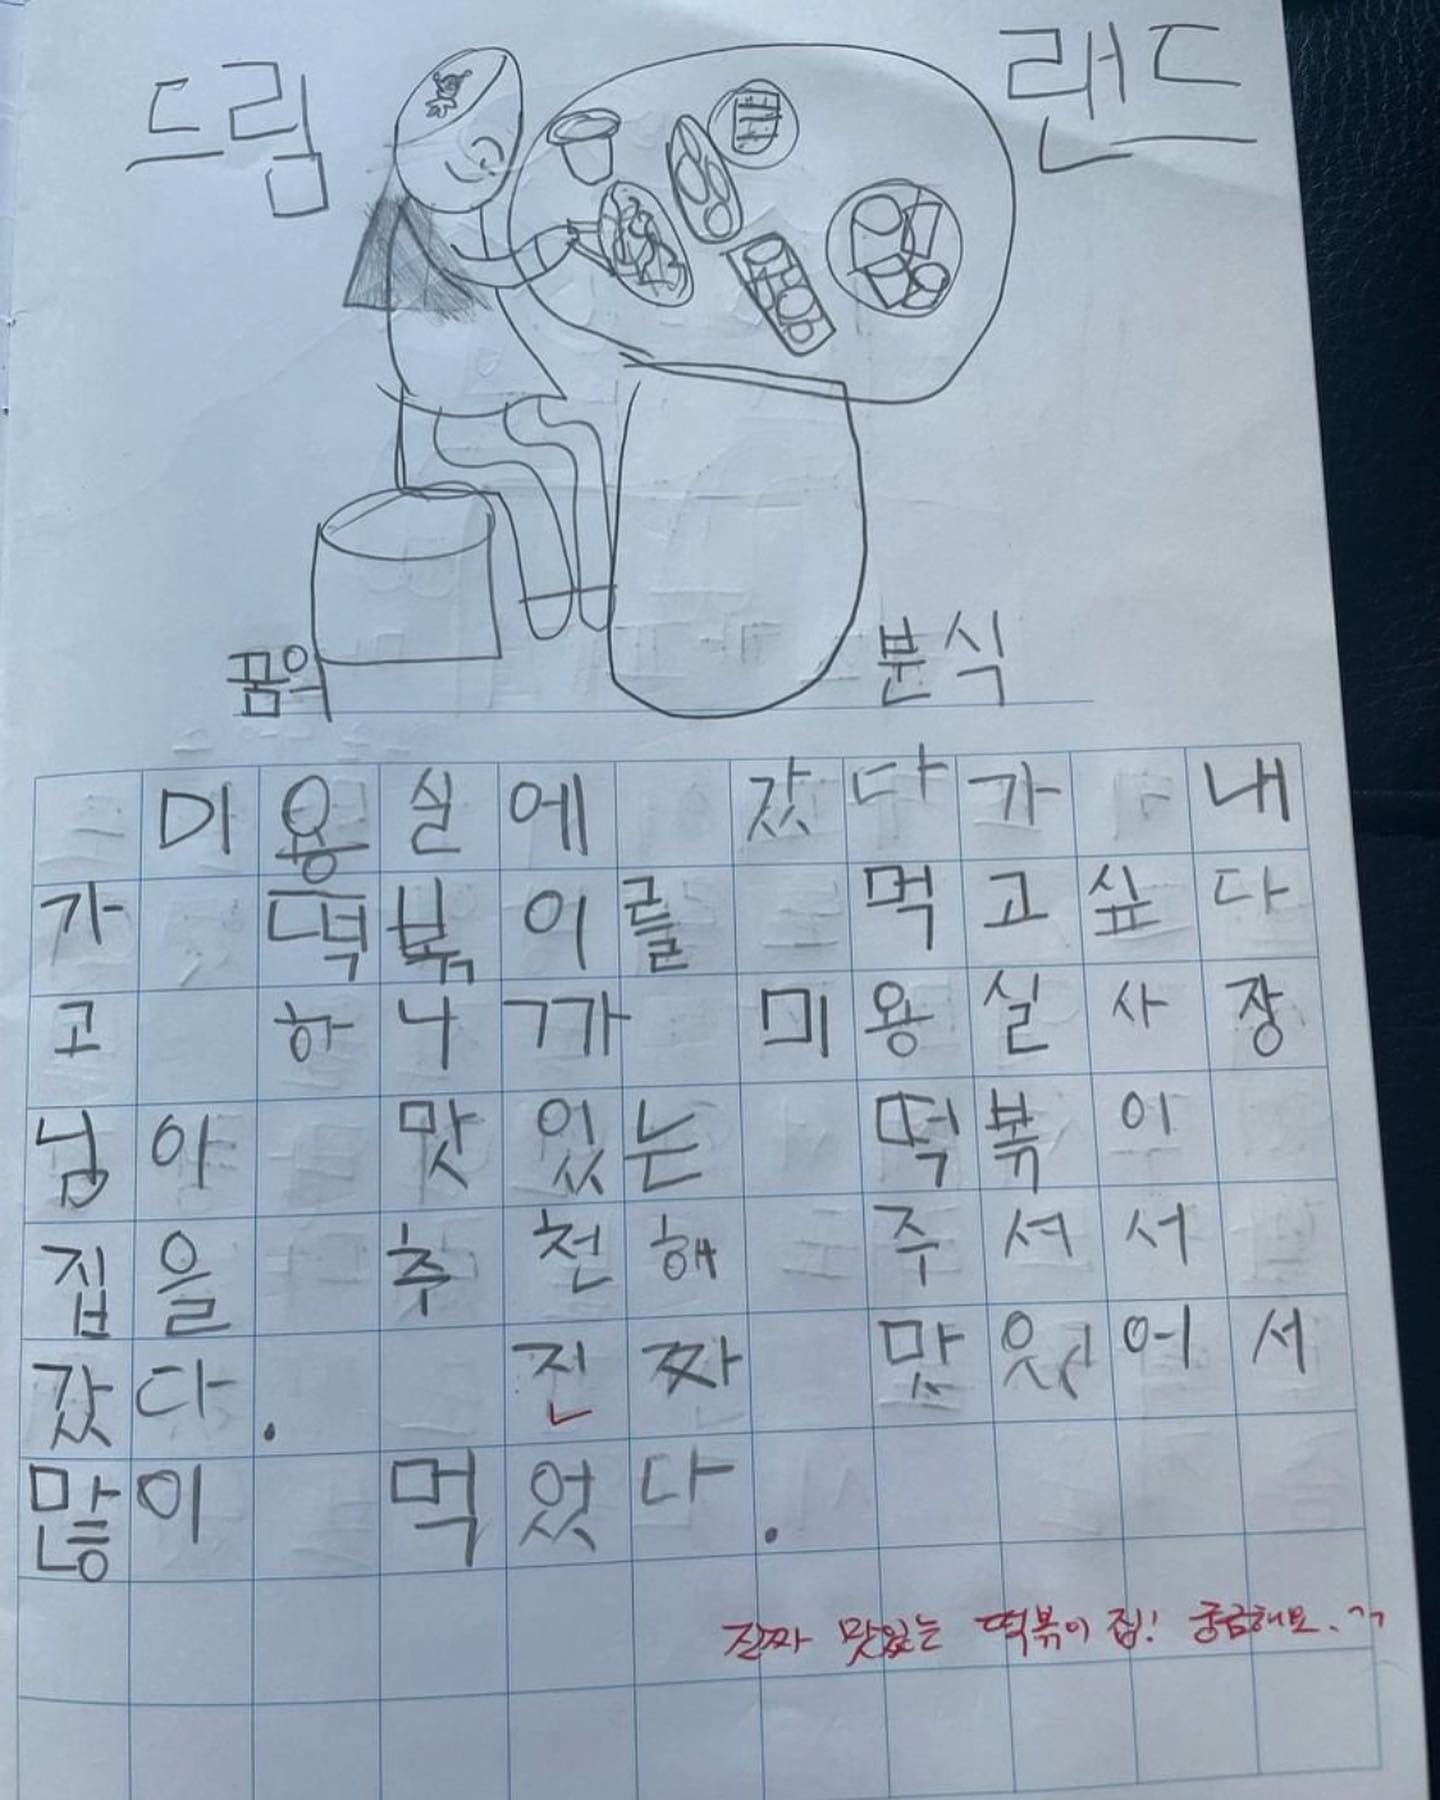 드림 랜드
꿈의 분식
미용실에 갔다가 내
가 떡볶이를 먹고싶다
고 하니까 미용실사장
님아 맛있는 떡볶이
집을 추천해 주셔서
갔다. 진짜 맛있어서
많이 먹었다.
진짜 맛있는 떡볶이 집! 궁금해요.^^